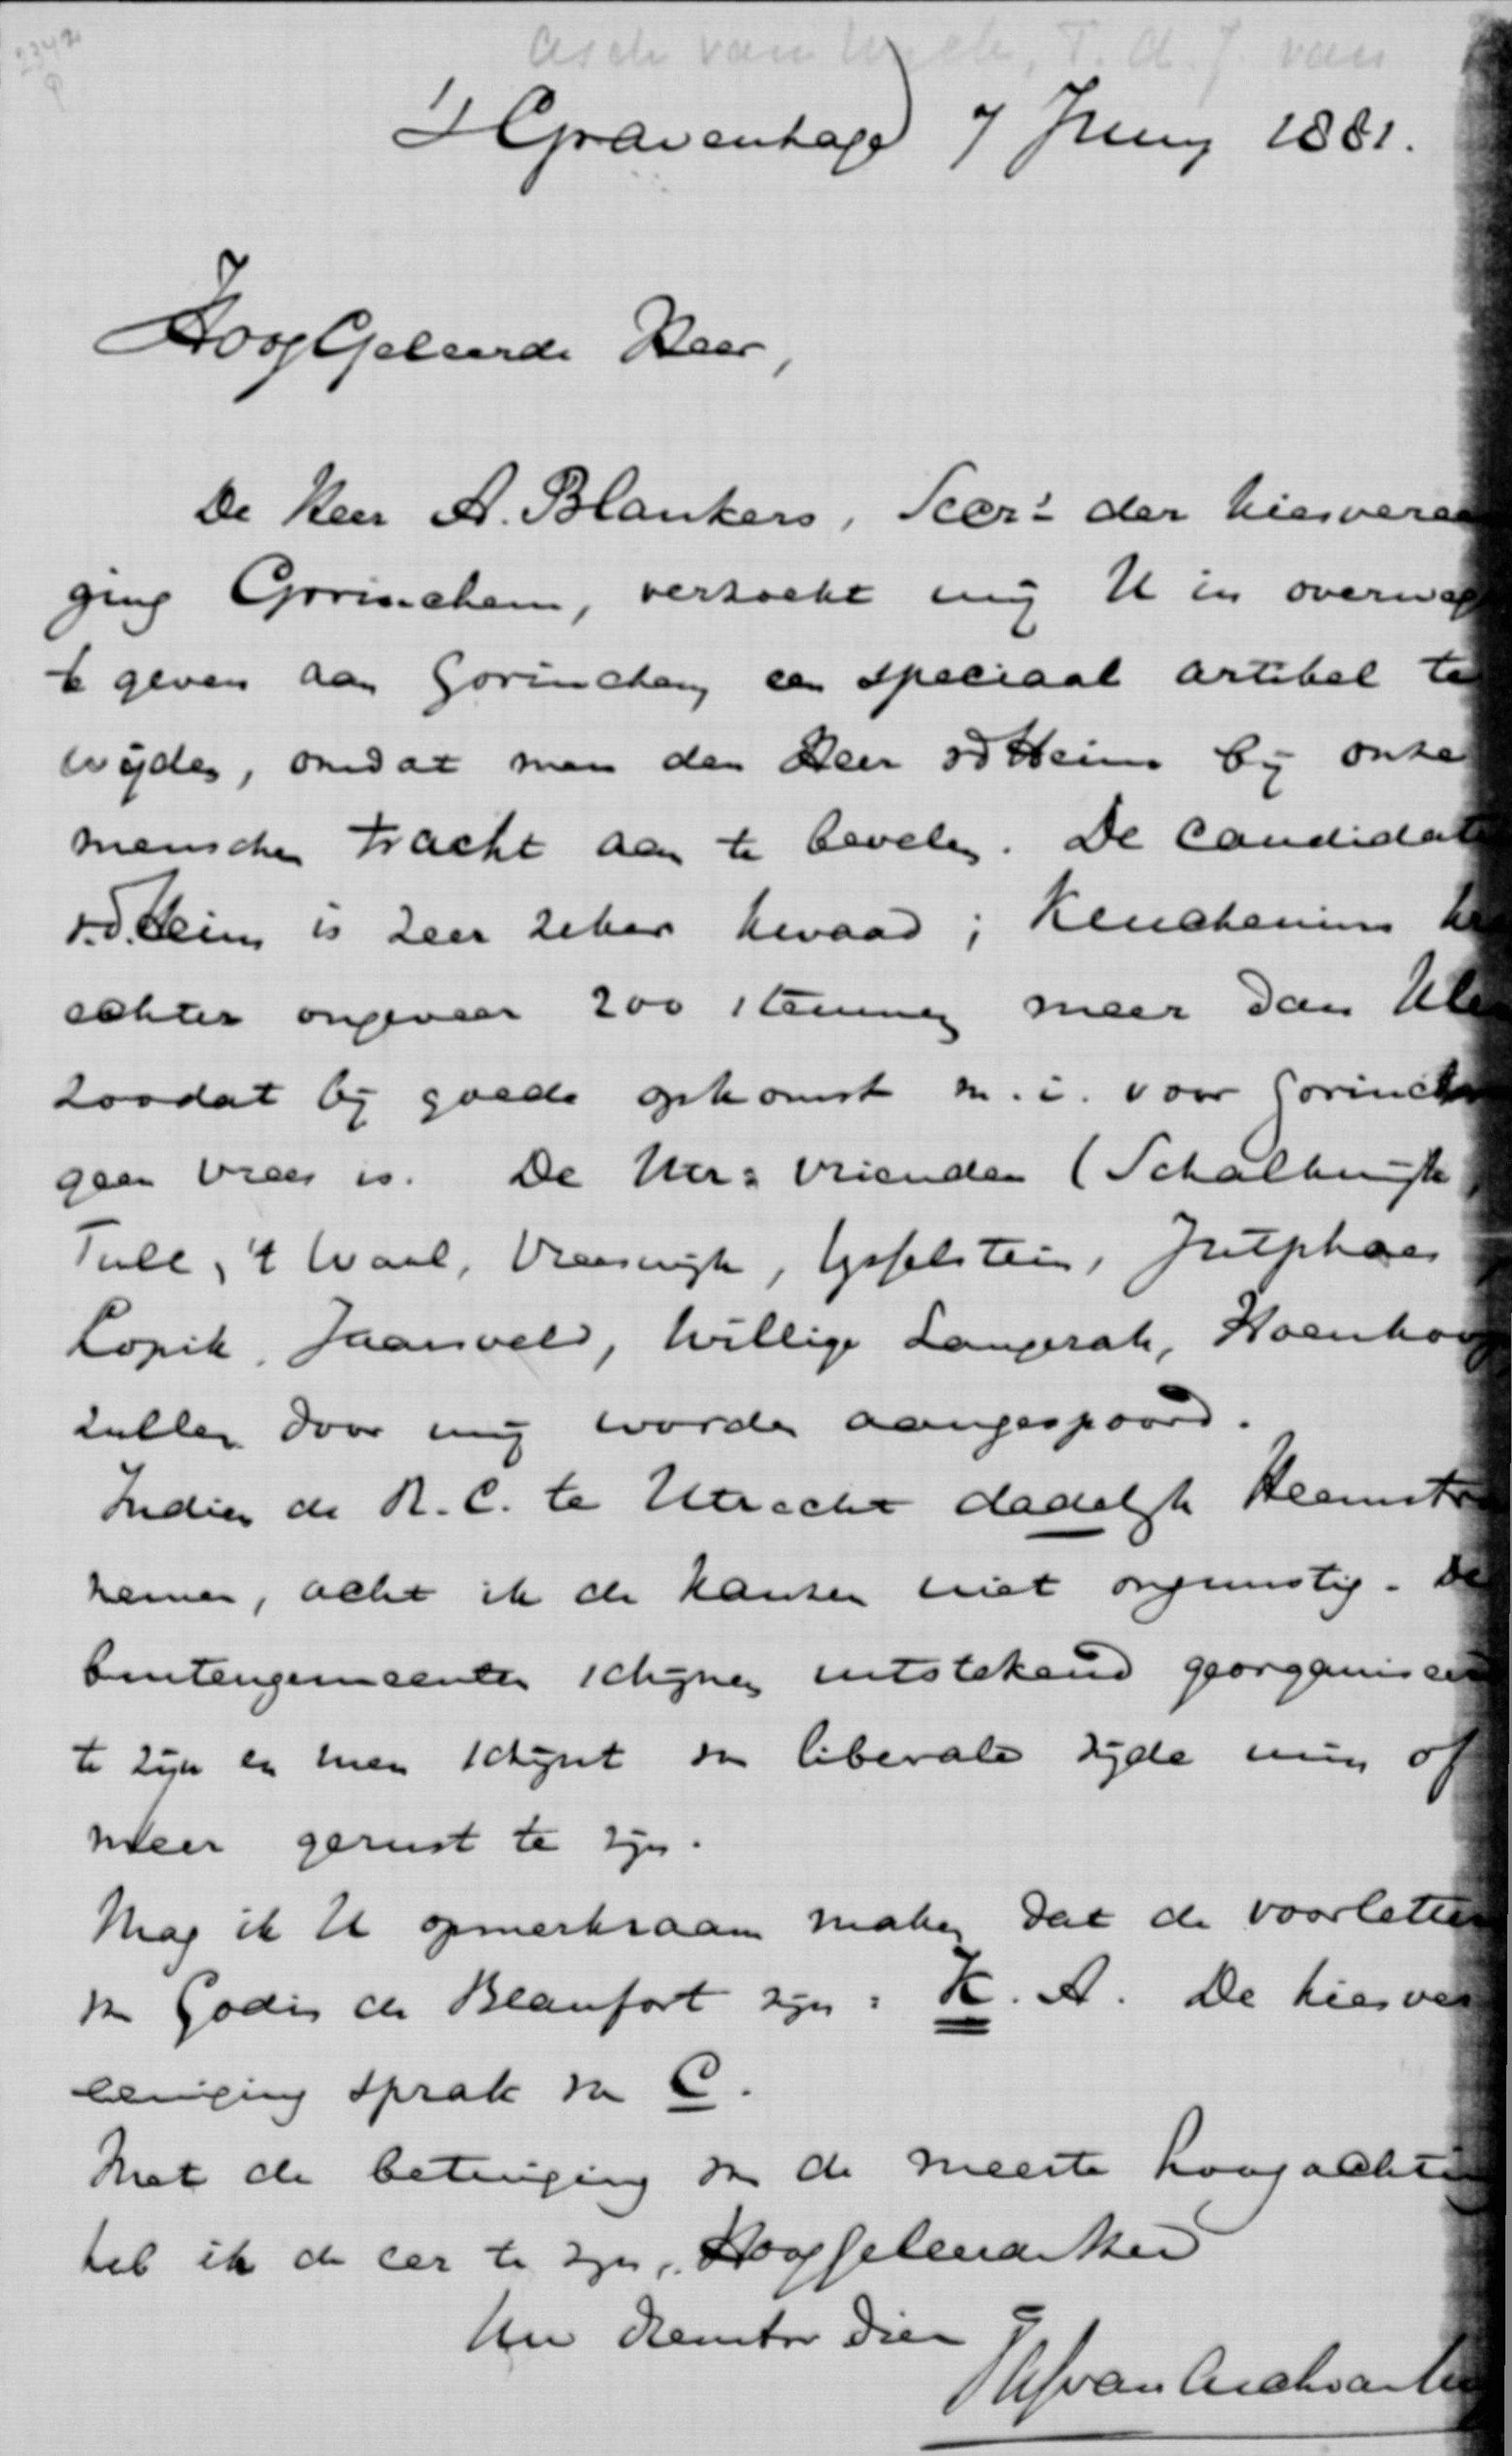 Asch van Wyck, T. A. J. van
'sGravenhage 7 Juny 1881.
HoogGeleerde Heer,
De Heer A. Blankers, Secrs der kiesveree
ging Gorinchem, verzocht mij U in overweg
te geven aan Gorinchem een speciaal artikel te
wijden, omdat men den Heer vd Heim bij onze
menschen tracht aan te bevelen. De candidat
v.d. Heim is zeer zeker kwaad; Keuchenius
echter ongeveer 200 stemmen meer dan
zoodat bij goede opkomst m.i. voor Gorinch
geen vrees is. De Utr: vrienden (Schalkwijk,
Tull, 't Waal, Vreeswijk, Ijsselstein, Jutphaas
Lopik, Jaarsveld, Willige Langerak, Hoenkoop
zullen door mij worden aangespoord.
Indien de R. C. te Utrecht dadelijk Heemstr
nemen, acht ik de kansen niet ongunstig. De
buitengemeenten schijnen uitstekend georganiseerd
te zijn en men schijnt van liberale zijde min of
meer gerust te zijn.
Mag ik U opmerkzaam maken dat de voorletters
van Godin de Beaufort zijn: K. A. De kiesver
eeniging sprak van C.
Met de betuiging van de meeste hoogachting
heb ik de eer te zijn, Hooggeleerde Heer
Uw dienstw dien
TAJvanAschvanWy